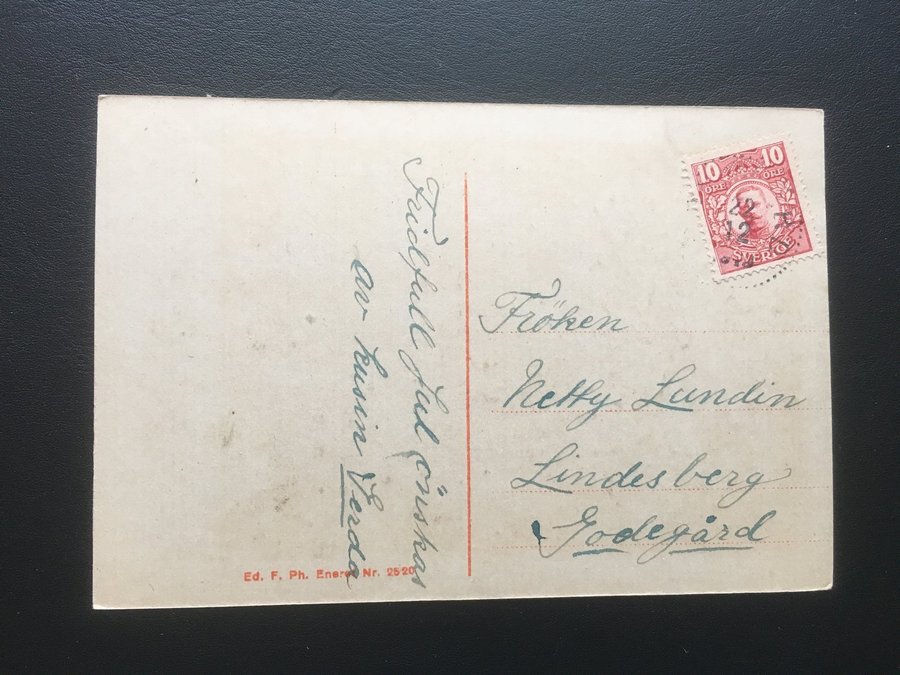 Fridfull Jul önskas
av kusin Verda
10 10
ÖRE ÖRE
SVERIGE
22
12
Fröken
Netty Lundin
Lindesberg
Godegård
Ed. F. Ph. Eneret Nr. 2520